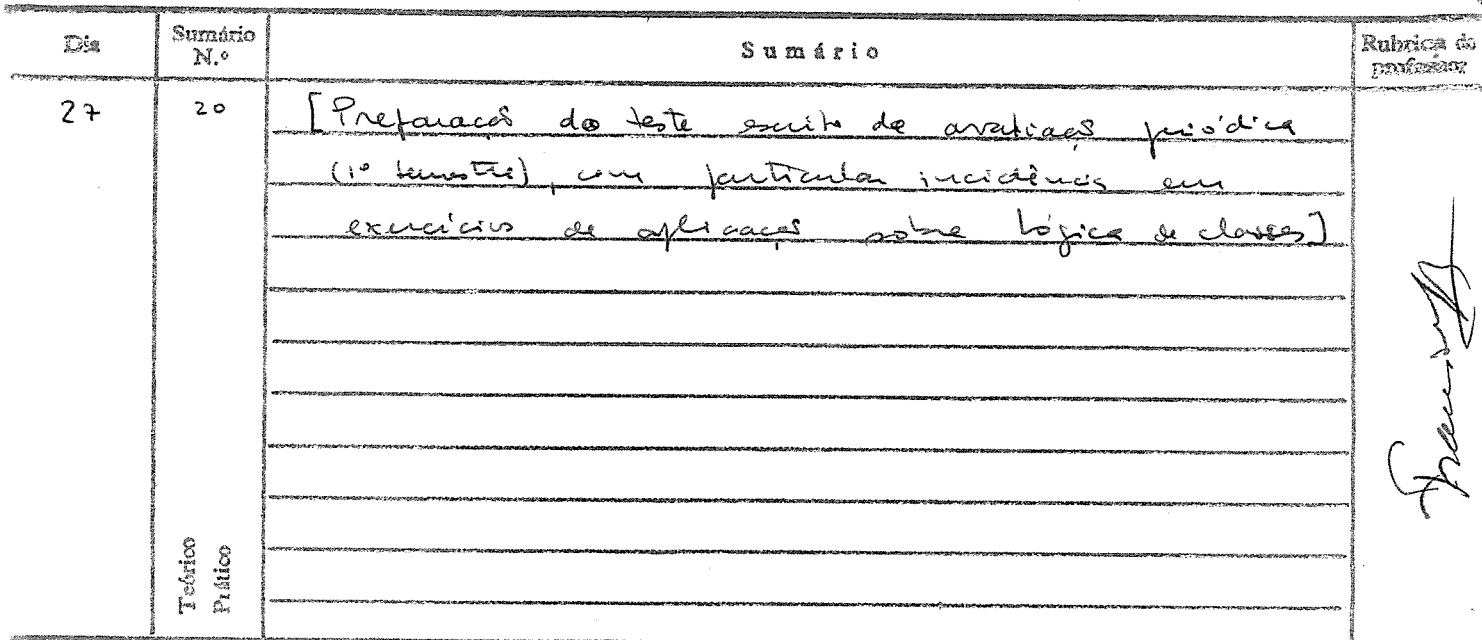 Dia
Sumário N.º
Sumário
Rubrica do professor
27
20
[Preparação do teste escrito de avaliação periódica
(1º semestre), com particular incidência em
exercícios de aplicação sobre lógica de classes]
Teórico
Prático